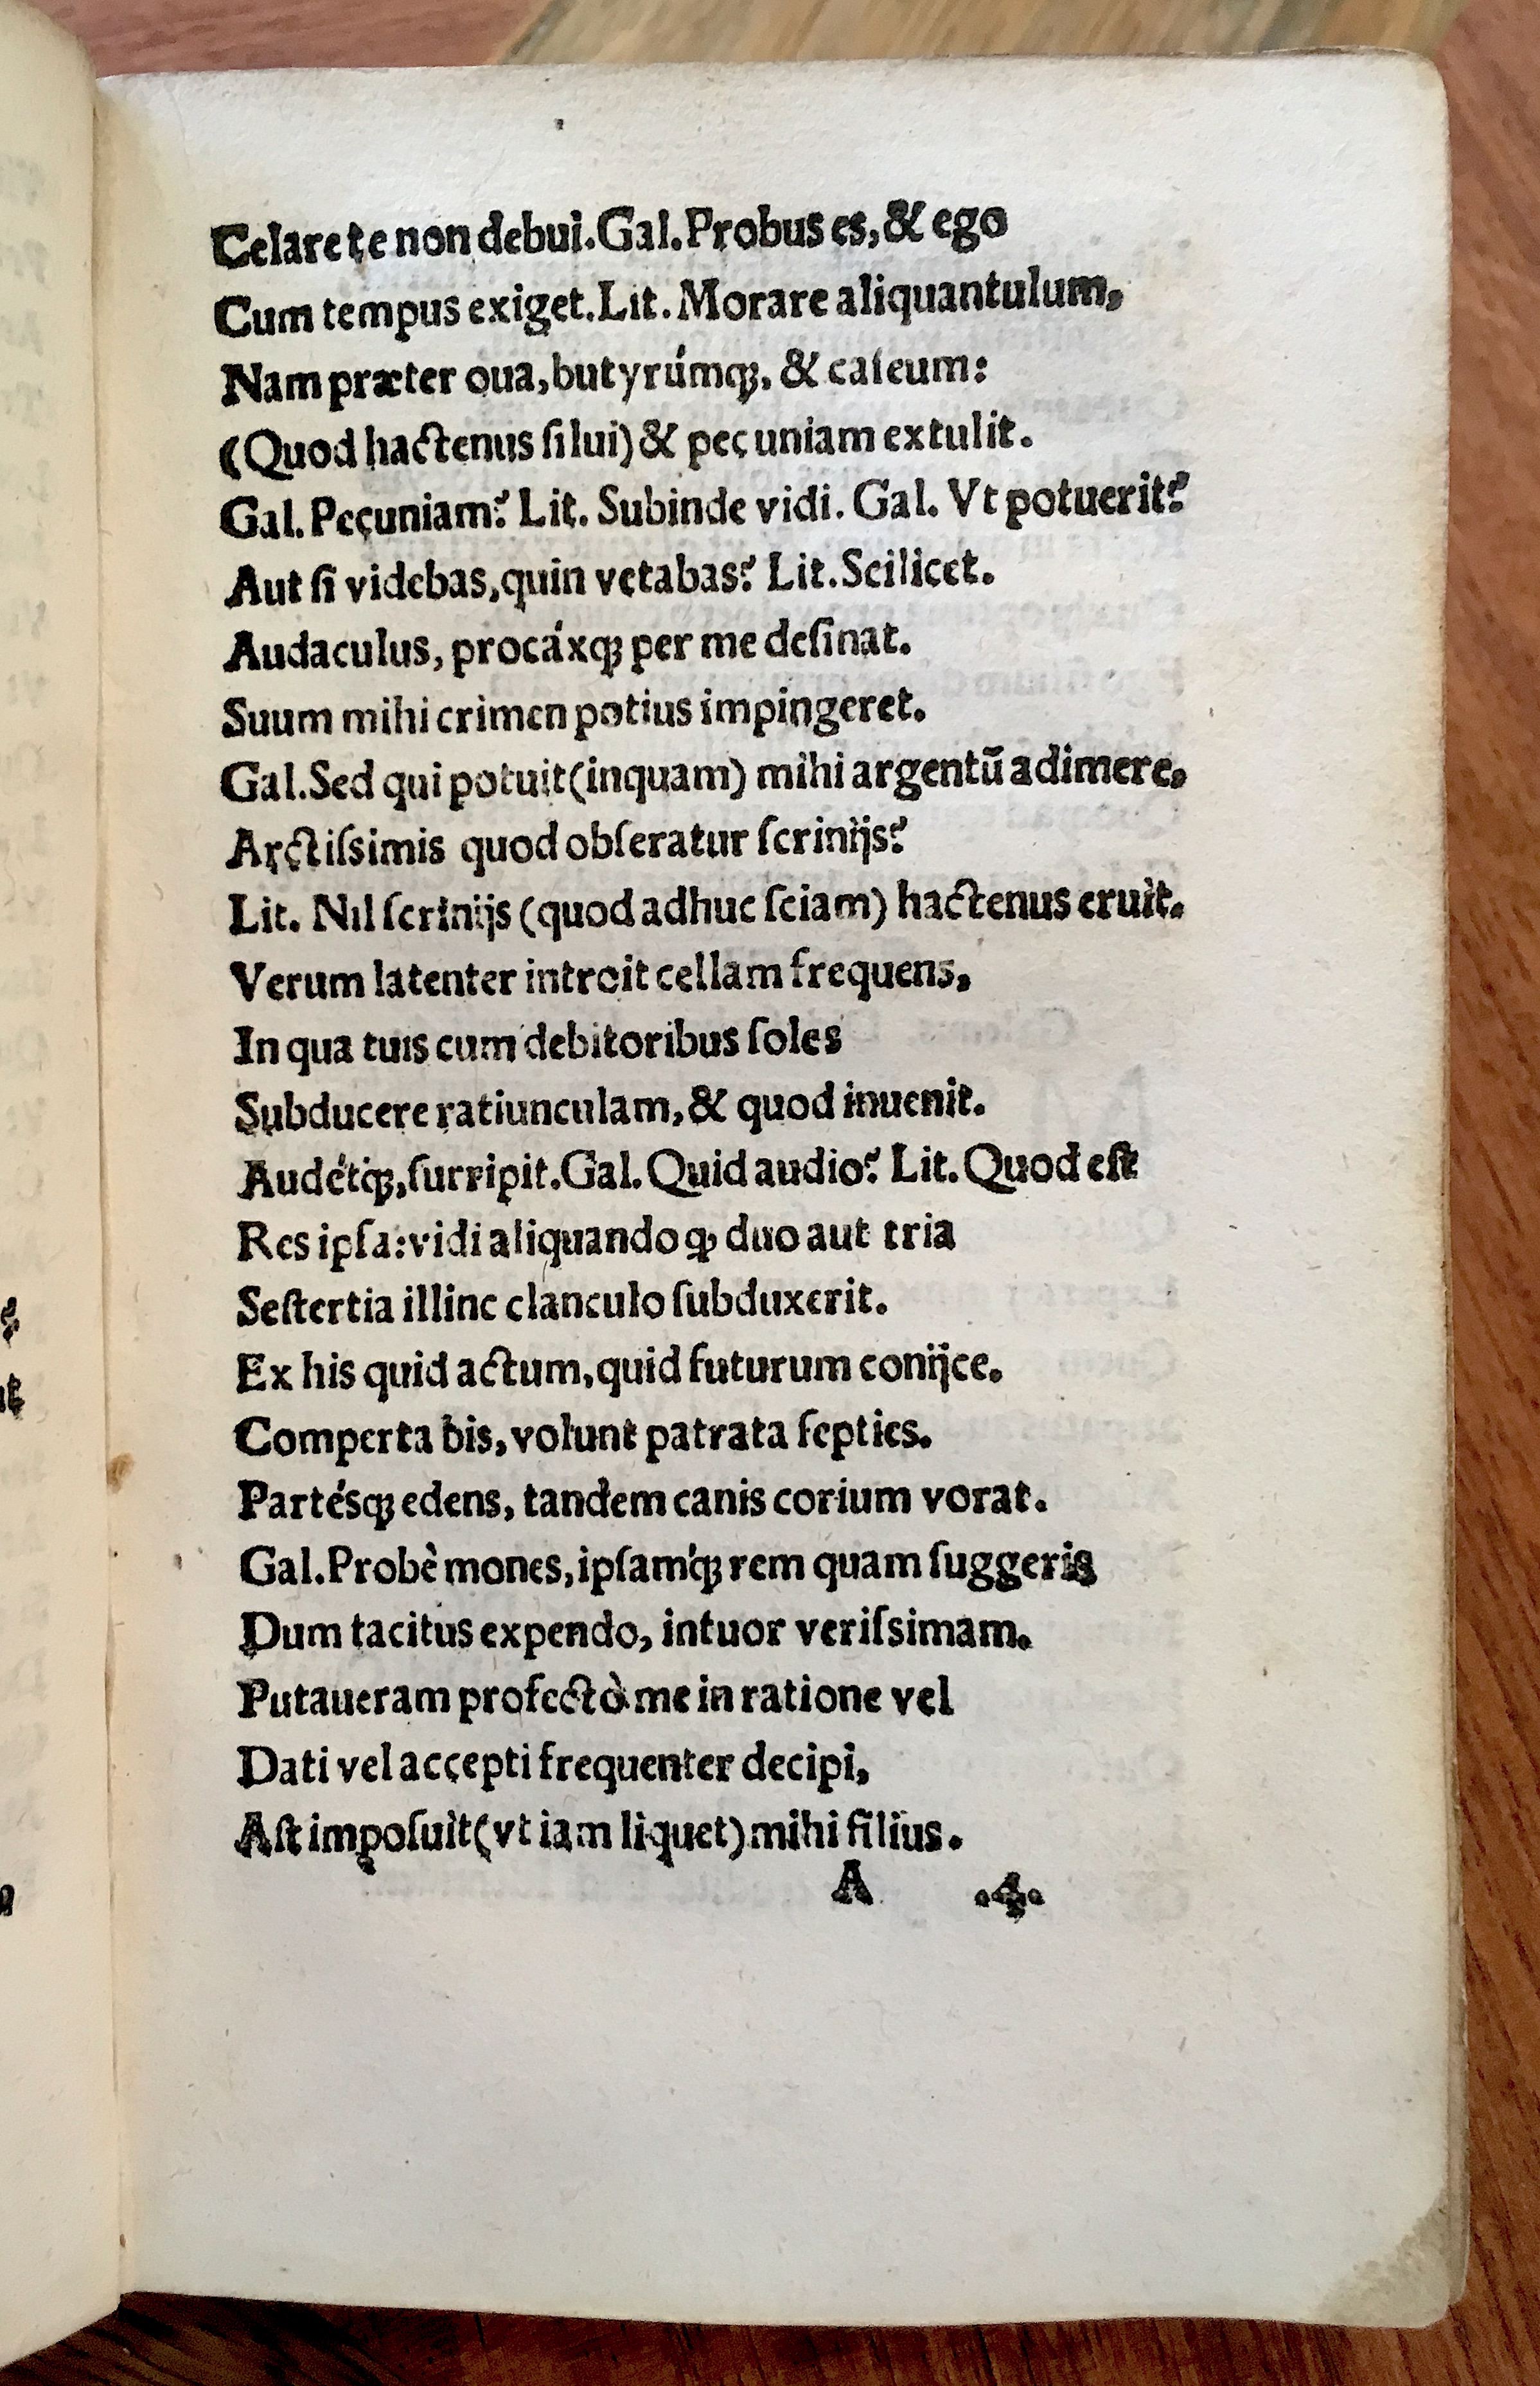 Celare te non debui. Gal. Probus es, & ego
Cum tempus exiget. Lit. Morare aliquantulum,
Nam præter oua, butyrúmqꝫ, & caſeum:
(Quod hactenus ſilui) & pecuniam extulit.
Gal. Pecuniam? Lit. Subinde vidi. Gal. Vt potuerit?
Aut ſi videbas, quin vetabas? Lit. Scilicet.
Audaculus, procáxqꝫ per me deſinat.
Suum mihi crimen potius impingeret.
Gal. Sed qui potuit (inquam) mihi argentū adimere,
Arctiſsimis quod obſeratur ſcrinijs?
Lit. Nil ſcrinijs (quod adhuc ſciam) hactenus eruit.
Verum latenter introit cellam frequens,
In qua tuis cum debitoribus ſoles
Subducere ratiunculam, & quod inuenit.
Audétqꝫ, ſurripit. Gal. Quid audio? Lit. Quod eſt
Res ipſa: vidi aliquando ꝙ duo aut tria
Seſtertia illinc clanculo ſubduxerit.
Ex his quid actum, quid futurum conijce.
Comperta bis, volunt patrata ſepties.
Partésqꝫ edens, tandem canis corium vorat.
Gal. Probè mones, ipſamq́ꝫ rem quam ſuggeris
Dum tacitus expendo, intuor veriſsimam.
Putaueram profectò me in ratione vel
Dati vel accepti frequenter decipi,
Aſt impoſuit (vt iam liquet) mihi filius.
A .4.